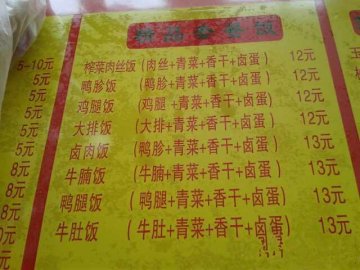 精品套餐饭
5-10元 榨菜肉丝饭 (肉丝+青菜+香干+卤蛋) 12元
5元 鸭胗饭 (鸭胗+青菜+香干+卤蛋) 12元
5元 鸡腿饭 (鸡腿+青菜+香干+卤蛋) 12元
5元 大排饭 (大排+青菜+香干+卤蛋) 12元
5元 卤肉饭 (鸭胗+青菜+香干+卤蛋) 13元
8元 牛腩饭 (牛腩+青菜+香干+卤蛋) 13元
8元 鸭腿饭 (鸭腿+青菜+香干+卤蛋) 13元
8元 牛肚饭 (牛肚+青菜+香干+卤蛋) 13元
0元